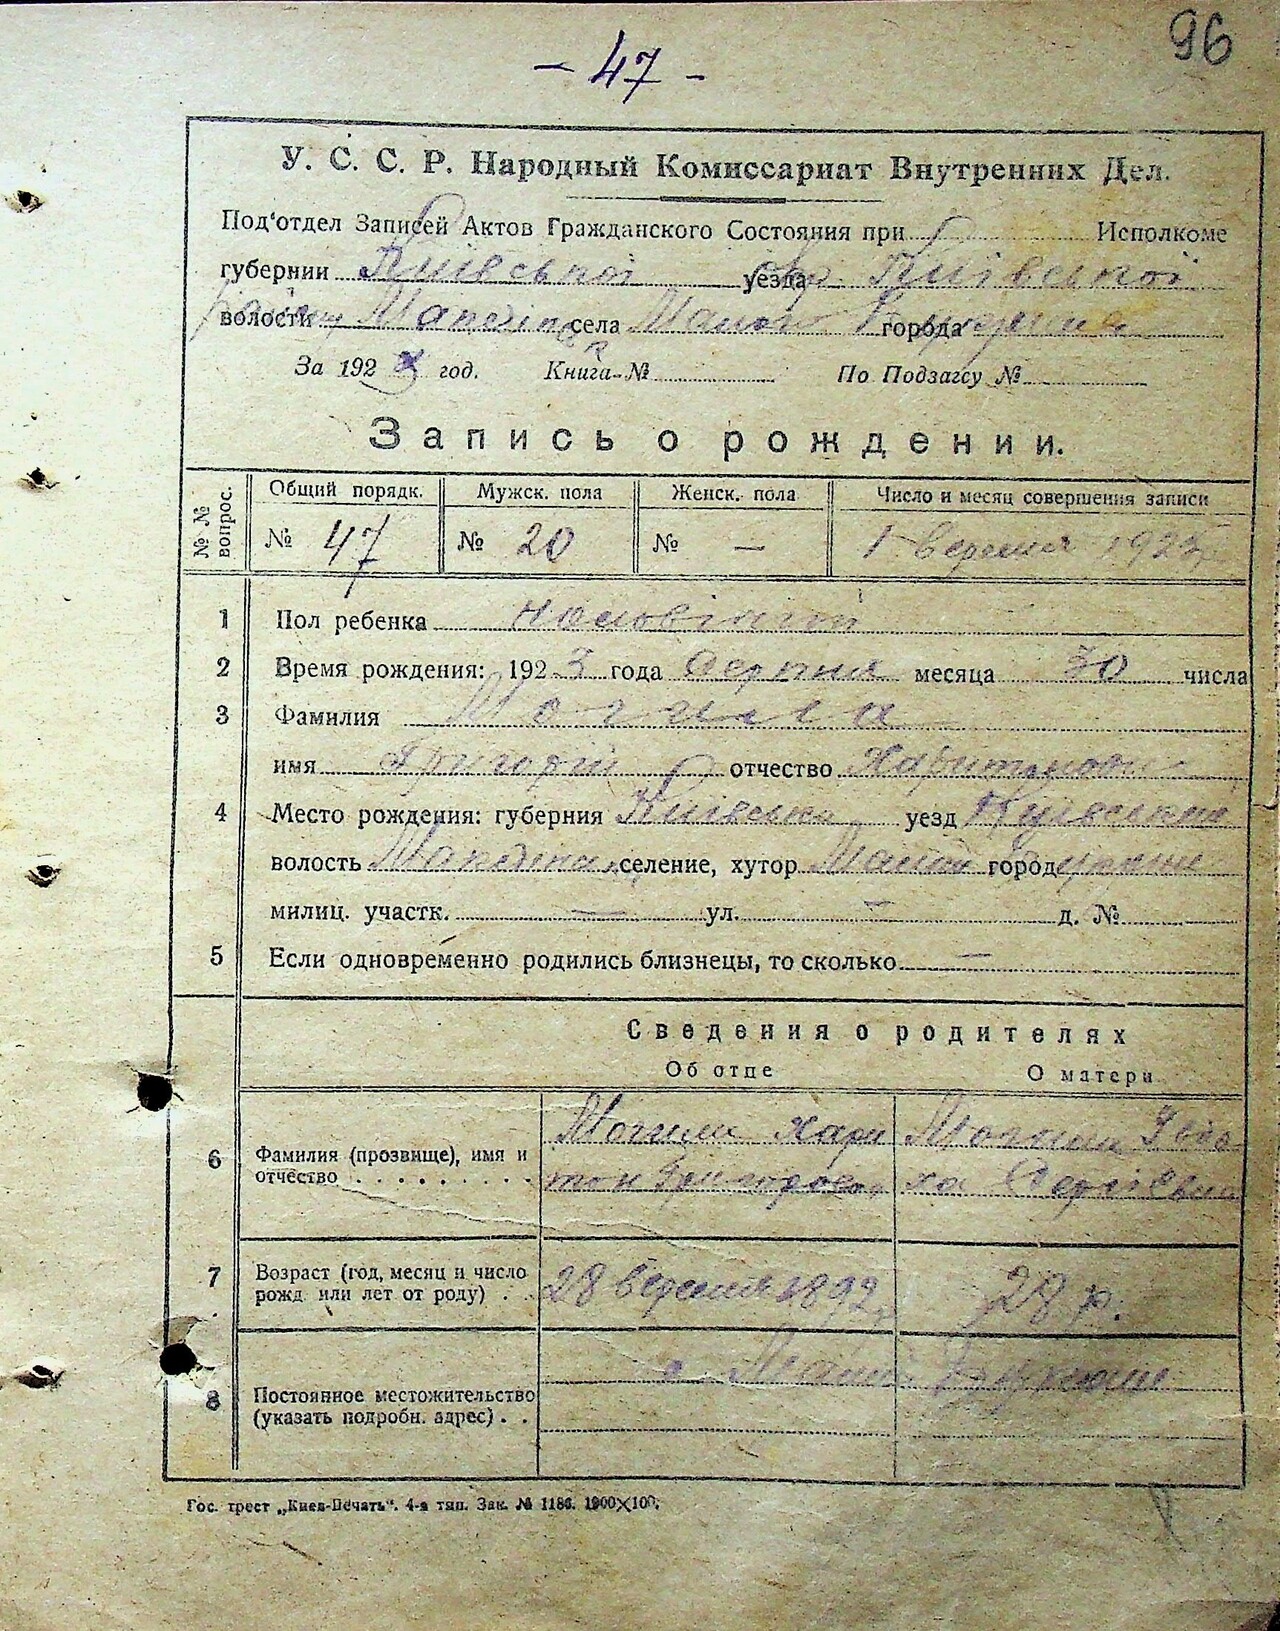 96
- 47 -
У. С. С. Р. Народный Комиссариат Внутренних Дел.
Под'отдел Записей Актов Гражданского Состояния при Исполкоме
губернии Київської уезда Київської
волости села города
За 1923 год. Книга № По Подзагсу №
Запись о рождении.
№ № вопрос. Общий порядк. Мужск. пола Женск. пола Число и месяц совершения записи
№ 47 № 20 № — 1 вересня 1923
1 Пол ребенка чоловічий
2 Время рождения: 1923 года серпня месяца 30 числа
3 Фамилия Могила
имя Григорій отчество Харитонович
4 Место рождения: губерния Київська уезд Київський
волость селение, хутор город
милиц. участк. — ул. — д. №
5 Если одновременно родились близнецы, то сколько —
Сведения о родителях
Об отце О матери
6 Фамилия (прозвище), имя и отчество Могила Харитон Григоров Могила Сергіевна
7 Возраст (год, месяц и число рожд. или лет от роду) 28 вересня 1892 28 р.
8 Постоянное местожительство (указать подробн. адрес) с.
Гос. трест „Киев-Печать". 4-я тип. Зак. № 1186. 1900×100.